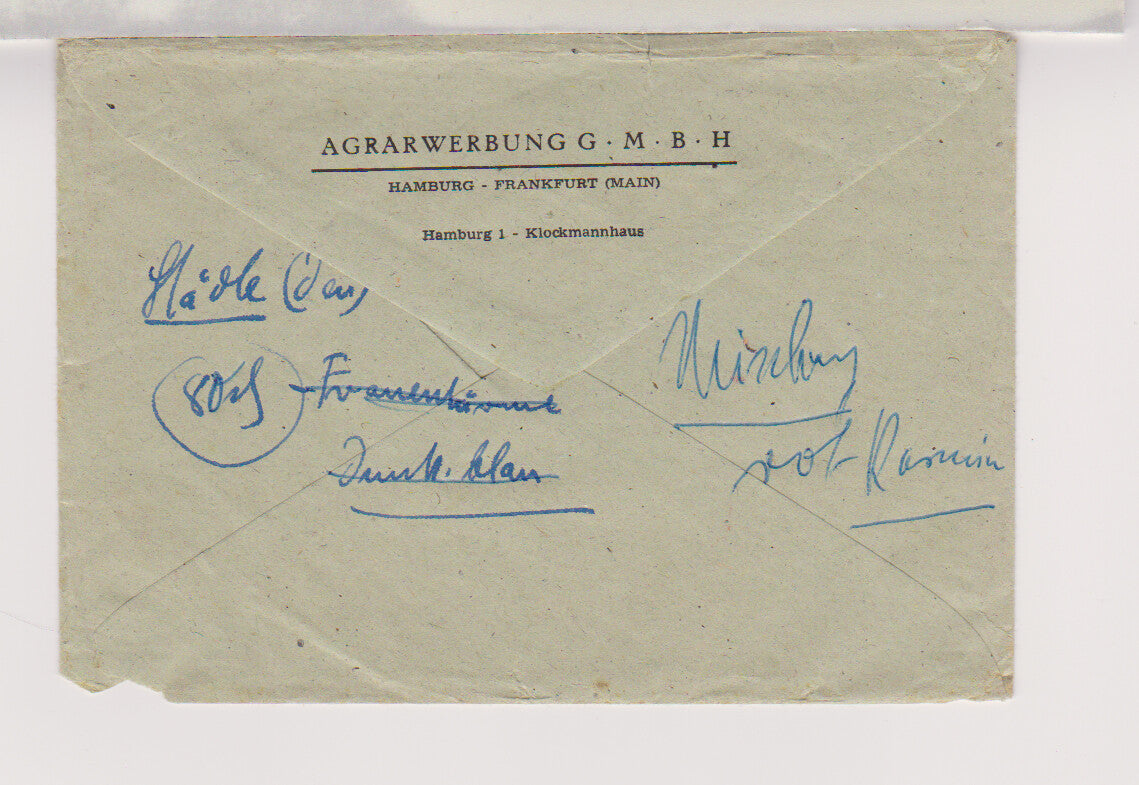 AGRARWERBUNG G·M·B·H
HAMBURG - FRANKFURT (MAIN)
Hamburg 1 - Klockmannhaus
Städte
80
Frauentürme
Dunk. blau
Mischung
rot Karmin